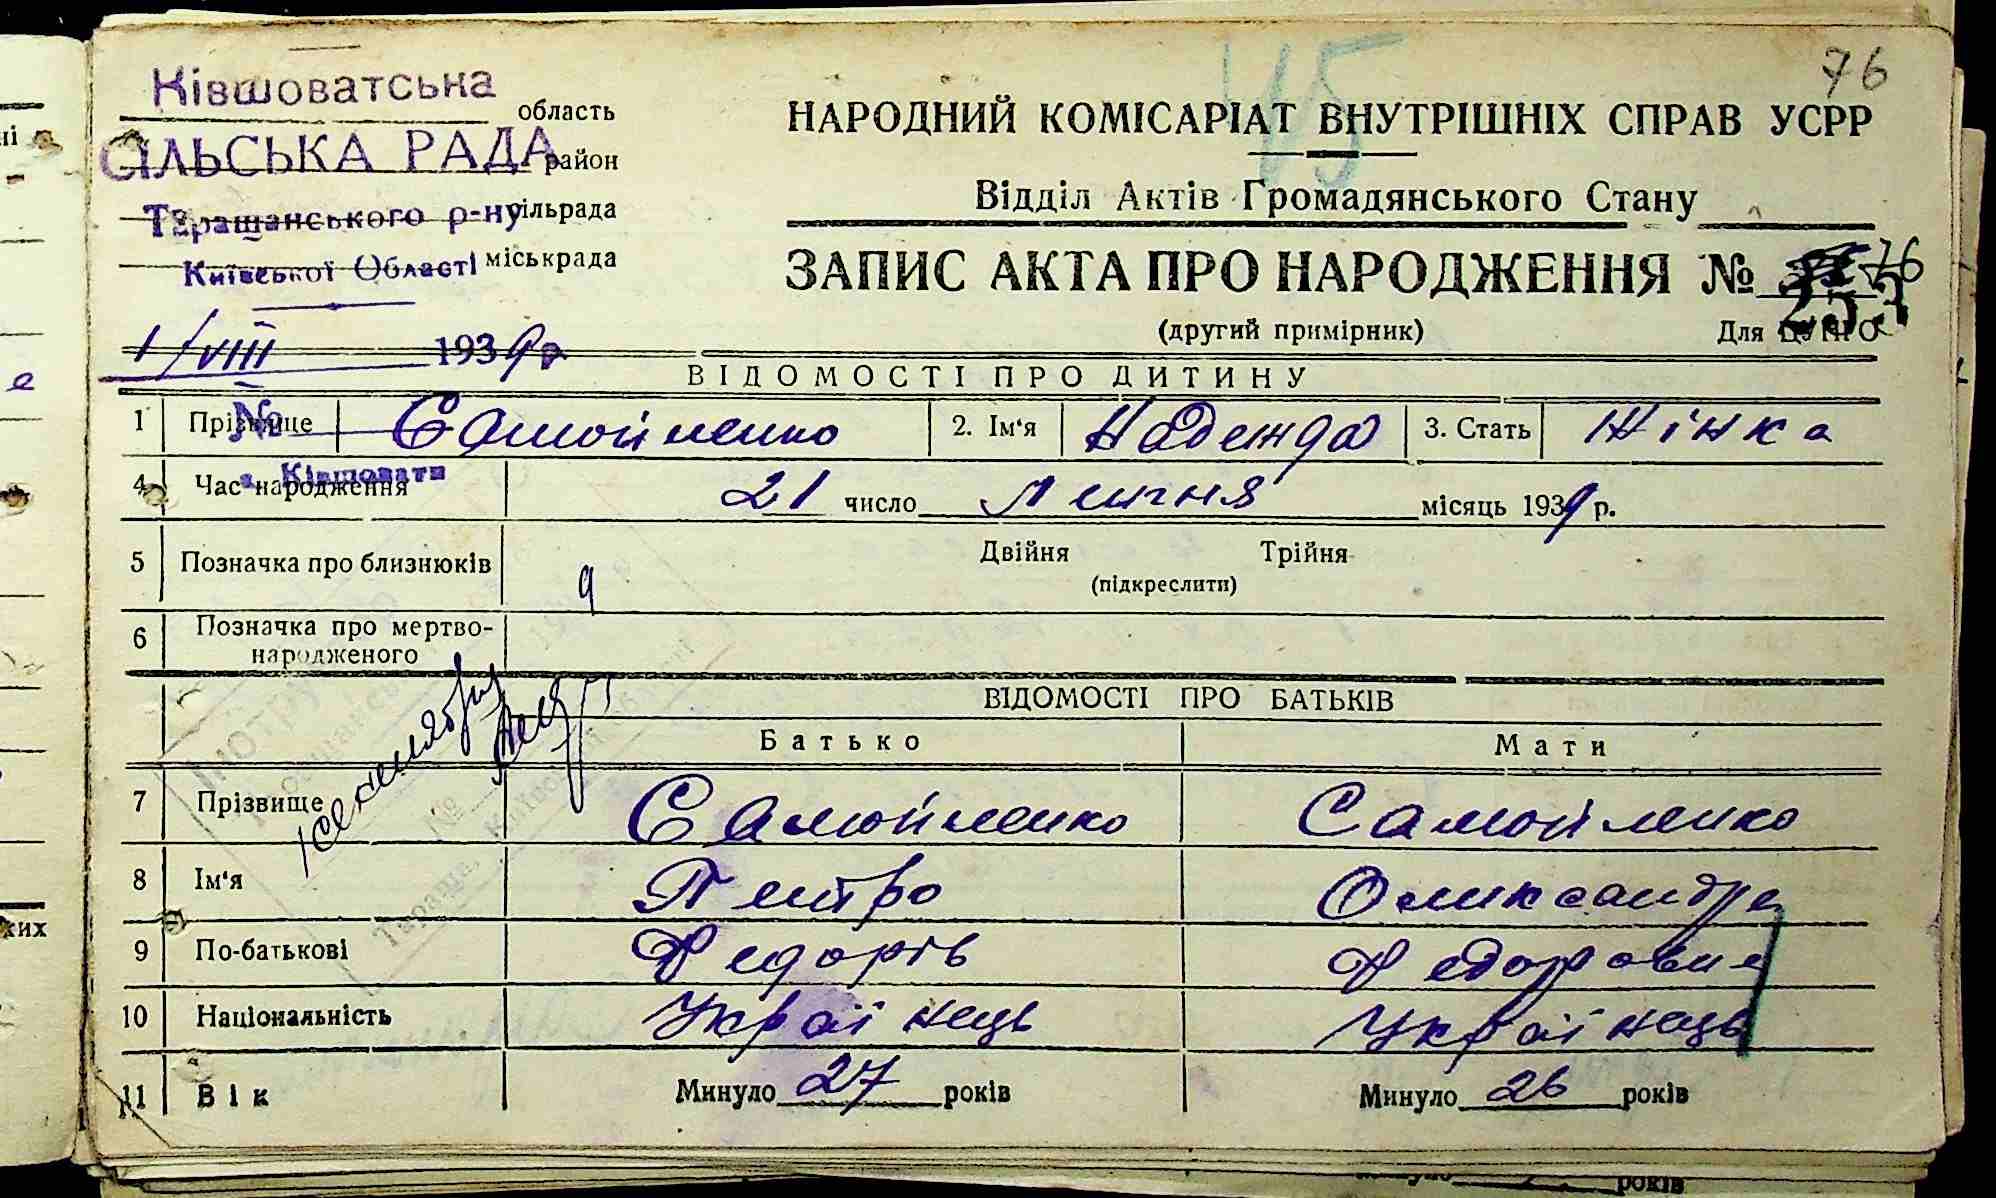 76
45
Ківшоватська область
СІЛЬСЬКА РАДА район
Таращанського р-ну сільрада
Київської Області міськрада
НАРОДНИЙ КОМІСАРІАТ ВНУТРІШНІХ СПРАВ УСРР
Відділ Актів Громадянського Стану
ЗАПИС АКТА ПРО НАРОДЖЕННЯ № 76
(другий примірник)
Для
1/VIII 1939р
ВІДОМОСТІ ПРО ДИТИНУ
1 Прізвище Самойленко 2. Ім'я Надежда 3. Стать Жінка
№
с. Ківшовати
4 Час народження 21 число Липня місяць 1939 р.
5 Позначка про близнюків Двійня Трійня
(підкреслити)
6 Позначка про мертво-
народженого
ВІДОМОСТІ ПРО БАТЬКІВ
Батько Мати
7 Прізвище Самойленко Самойленко
8 Ім'я Петро Олександра
9 По-батькові Федорів
10 Національність Українець Українець
11 Вік Минуло 27 років Минуло 26 років